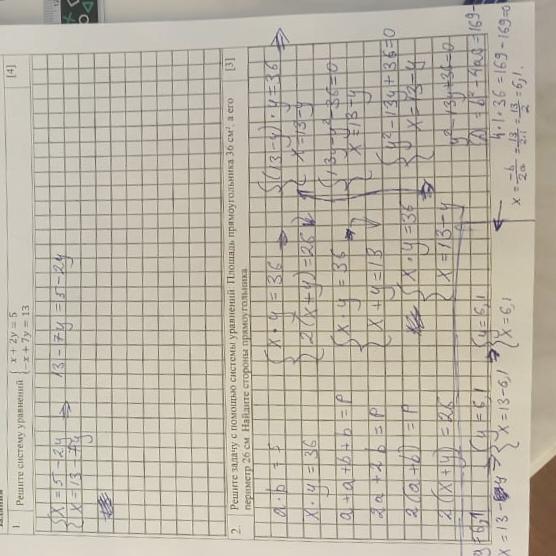 1 Решите систему уравнений { x + 2y = 5
−x + 7y = 13 [4]
{ x = 5 - 2y
x = 13 7y ⇒ 13 - 7y = 5 - 2y
2. Решите задачу с помощью системы уравнений Площадь прямоугольника 36 см², а его [3]
периметр 26 см Найдите стороны прямоугольника
a · b = S
x · y = 36
a + a + b + b = P
2a + 2b = P
2(a + b) = P
2(x + y) = 26
{ x · y = 36
2(x + y) = 26
{ x · y = 36
x + y = 13
{ x · y = 36
x = 13 - y
{ (13 - y) · y = 36
x = 13 - y
{ 13y - y² - 36 = 0
x = 13 - y
{ y² - 13y + 36 = 0
x = 13 - y
y² - 13y + 36 = 0
D = b² - 4ac = 169 -
4 · 1 · 36 = 169 - 169 = 0
x = -b/2a = 13/2·1 = 13/2 = 6,1.
{ y = 6,1
x = 13 - 6,1
{ y = 6,1
x = 6,1